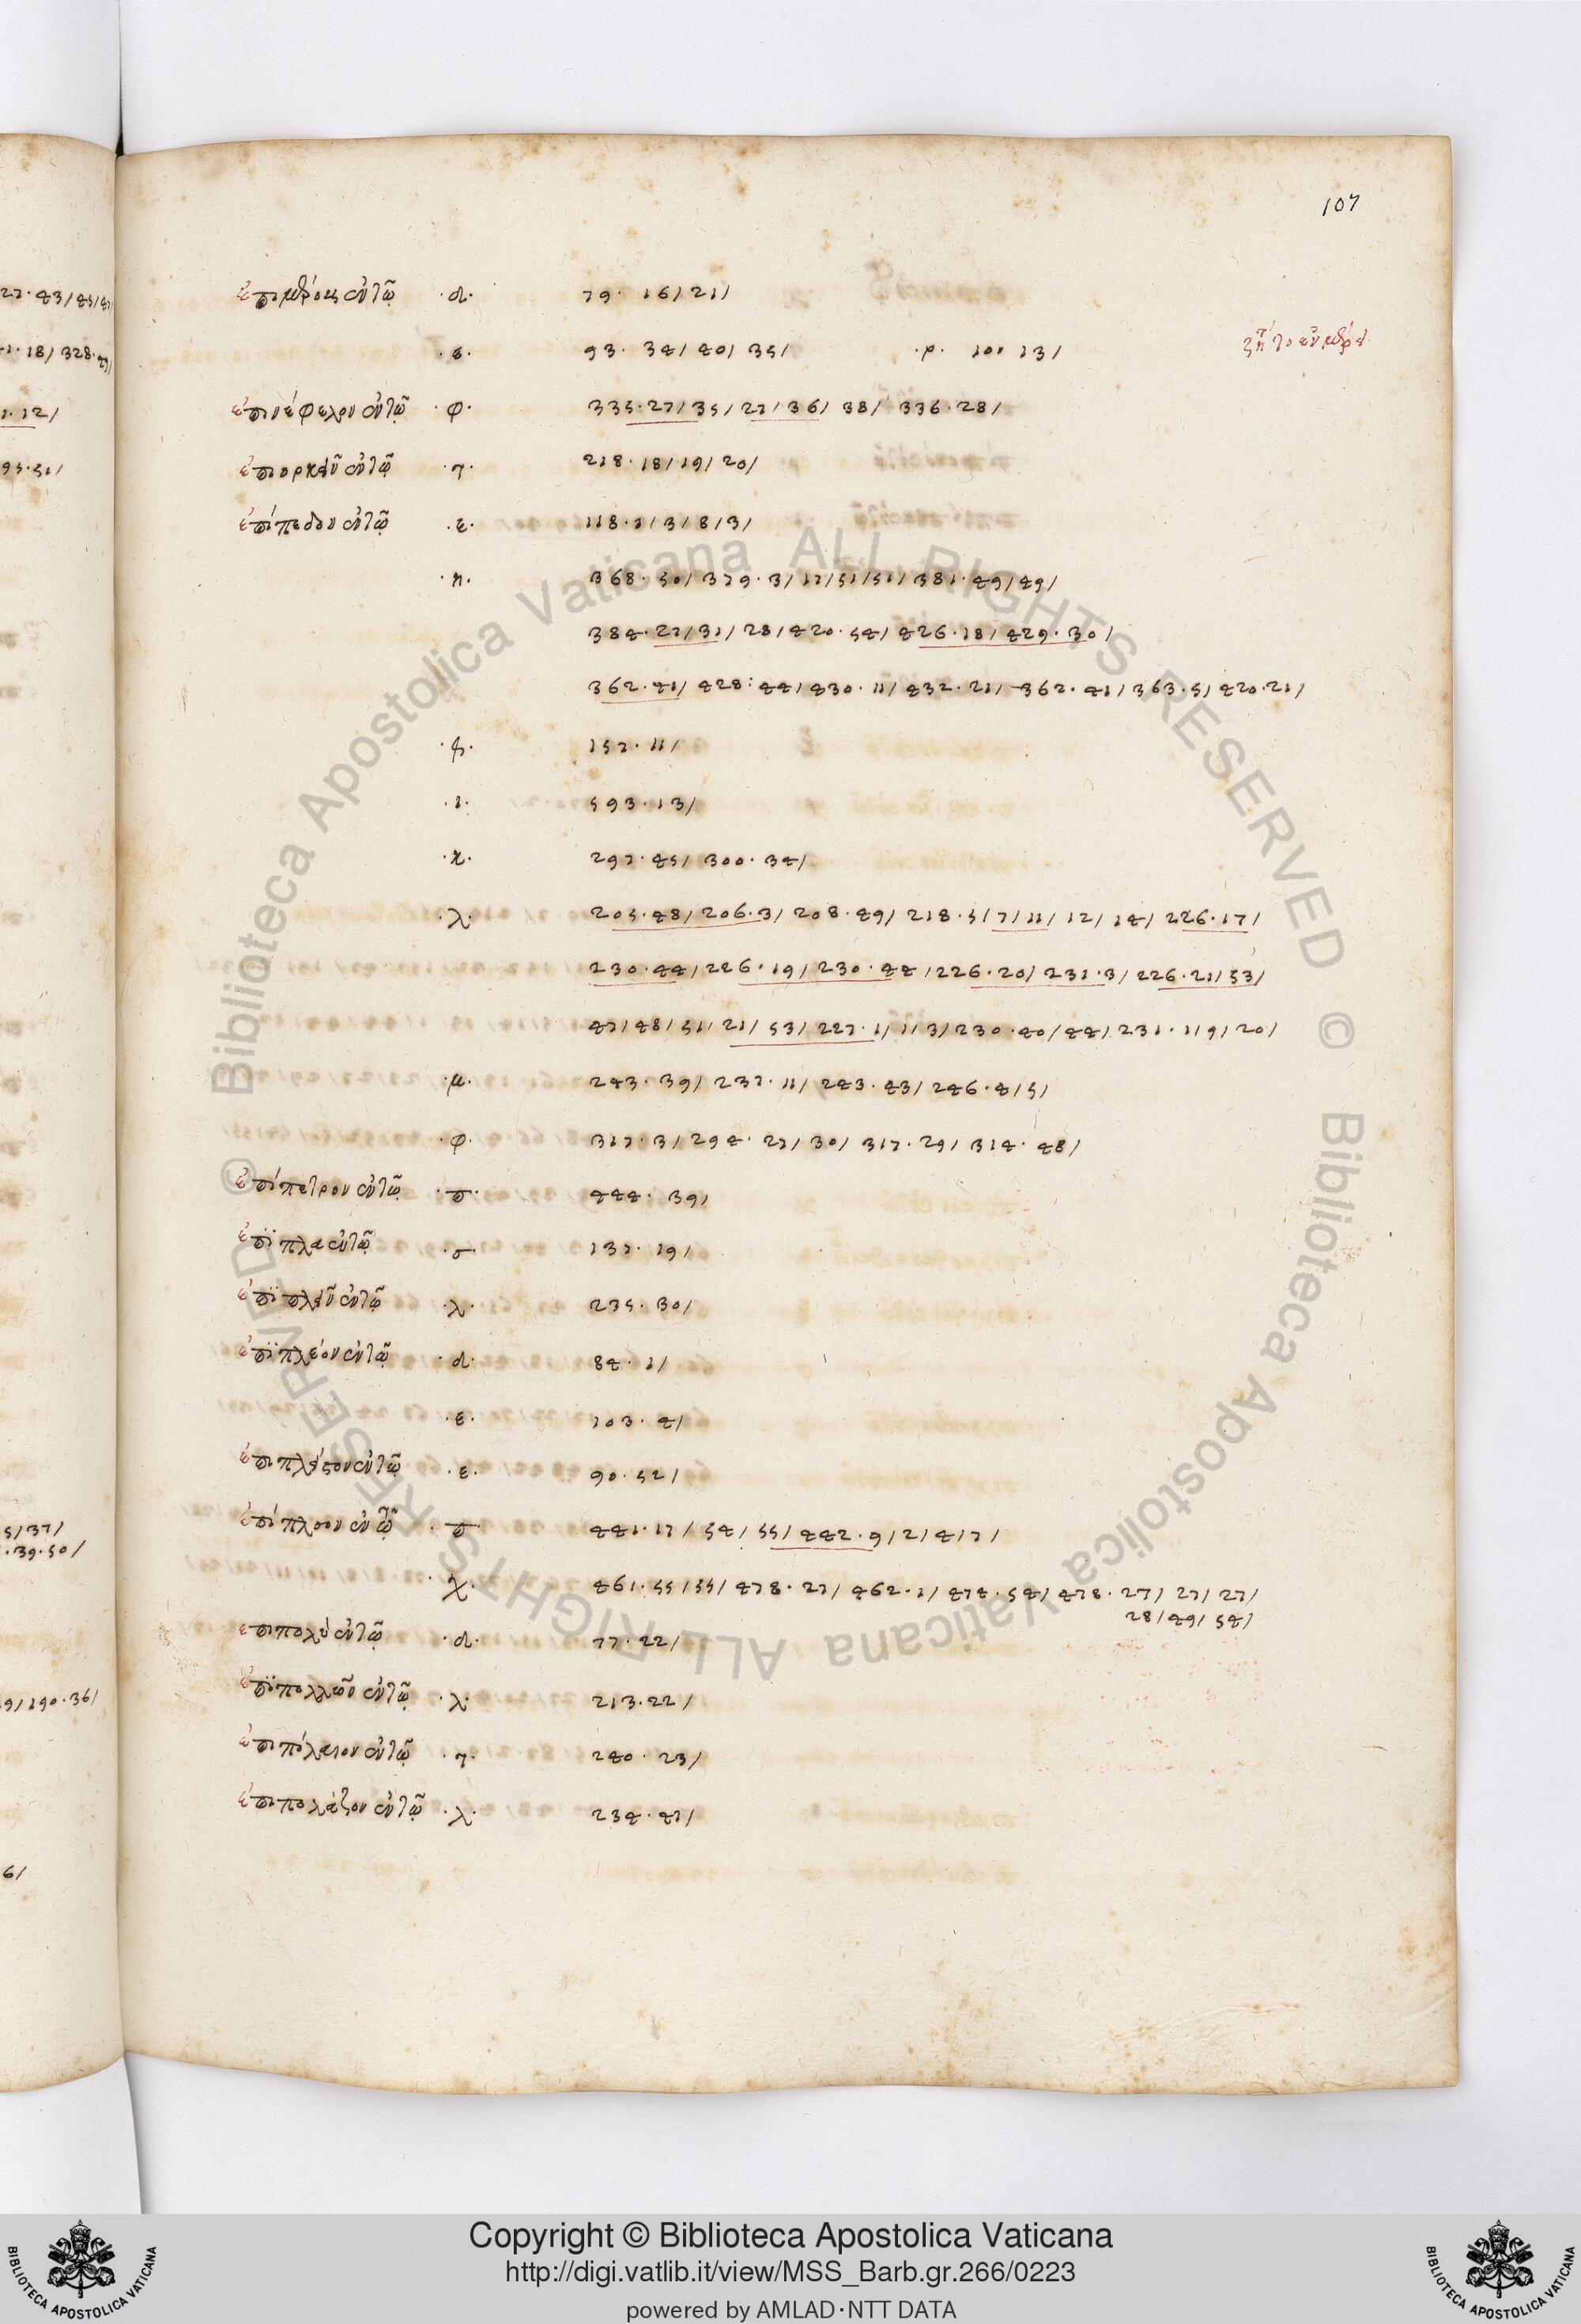 107
·α· 79· 16/21/
·ε· 93· 34/40/35/ ·ρ· 101 13/
ἐπινέφελον ἐν τῷ ·φ· 335·27/35/27/36/38/336·28/
ἐπιορκεῖν ἐν τῷ ·γ· 218·18/19/20/
ἐπίπεδον ἐν τῷ ·ε· 118·1/3/8/3/
·η· 368·50/379·3/17/51/51/381·49/49/
384·27/31/28/420·54/426·18/429·30/
362·41/428:44/430·11/432·21/362·41/363·5/420·21/
157·11/
·ι· 593·13/
·κ· 297·45/300·34/
·λ· 205·48/206·3/208·49/218·5/7/11/12/14/226·17/
230·44/226·19/230·44/226·20/231·3/226·21/53/
47/48/51/21/53/227·1/1/3/230·40/44/231·1/9/20/
·μ· 243·39/237·11/243·43/246·4/5/
·φ· 317·3/294·27/30/317·29/314·48/
ἐπίπετρον ἐν τῷ ·π· 444·39/
ἐπίπλα ἐν τῷ ·σ· 137·19/
ἐπιπλεῖν ἐν τῷ ·λ· 235·30/
ἐπιπλέον ἐν τῷ ·α· 84·1/
·ε· 103·4/
ἐν τῷ ·ε· 90·52/
ἐπίπλοον ἐν τῷ ·π· 441·17/54/55/442·9/2/4/7/
·χ· 461·55/55/478·27/462·1/474·54/478·27/27/27/
28/49/54/
ἐπιπολὺ ἐν τῷ ·α· 77·22/
ἐπιπολλῶν ἐν τῷ ·λ· 213·22/
ἐπιπόλαιον ἐν τῷ ·γ· 240·23/
ἐπιπολάζον ἐν τῷ ·λ· 234·47/
© Biblioteca Apostolica Vaticana ALL RIGHTS RESERVED © Biblioteca Apostolica Vaticana ALL RIGHTS RESERVED
Copyright © Biblioteca Apostolica Vaticana
http://digi.vatlib.it/view/MSS_Barb.gr.266/0223
powered by AMLAD·NTT DATA
BIBLIOTECA APOSTOLICA VATICANA
BIBLIOTECA APOSTOLICA VATICANA